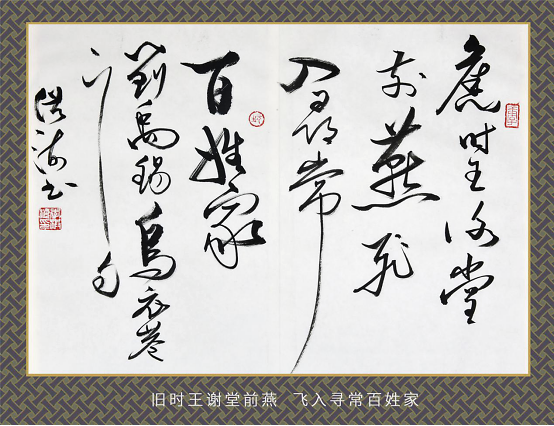 舊时王谢堂
前燕飞
入寻常
百姓家
劉禹锡烏衣巷
诗句
书
旧时王谢堂前燕 飞入寻常百姓家